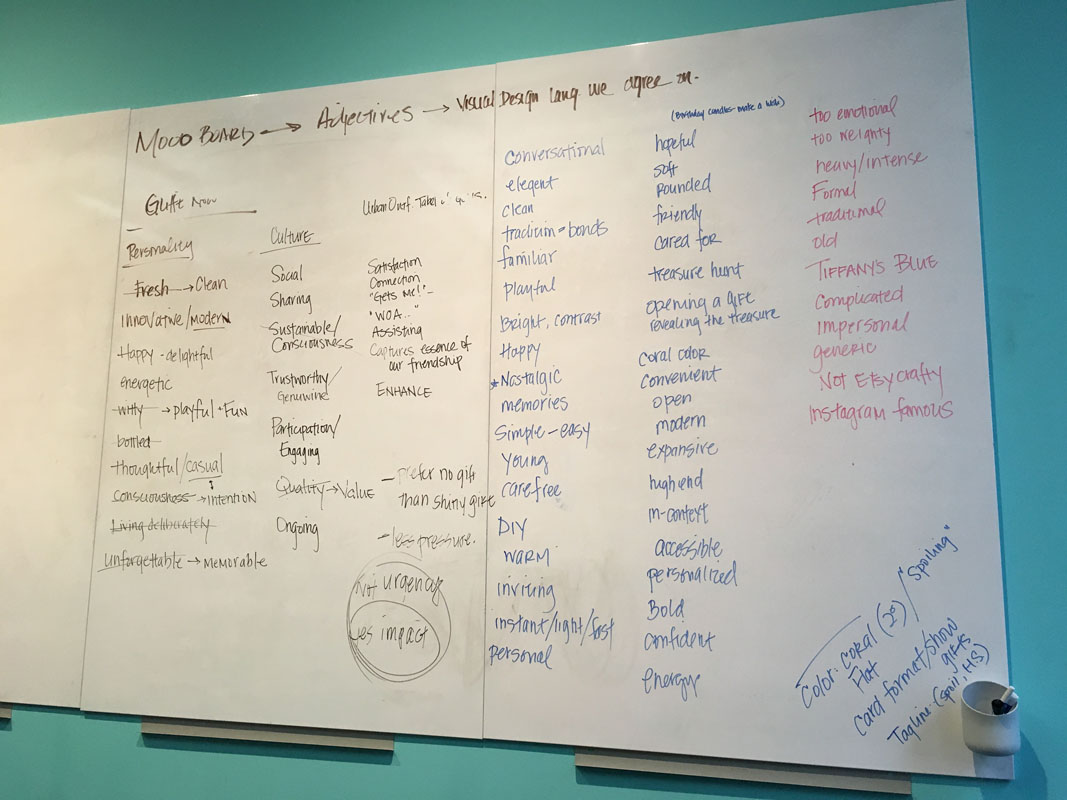 MOOD BOARD → Adjectives → Visual Design lang we agree on.
Gift Now
Personality
Fresh → Clean
Innovative/Modern
Happy - delightful
energetic
witty → playful + Fun
bottled
thoughtful/casual
consciousness → Intention
Living deliberately
Unforgettable → Memorable
Culture
Social
Sharing
Sustainable/
Consciousness
Trustworthy/
Genuwine
Participation/
Engaging
Quality → Value
Ongoing
Urban Outf.
Satisfaction
Connection
"Gets Me!"
"WOA..."
Assisting
Captures essence of
our friendship
ENHANCE
- prefer no gift
than shiny gift
- less pressure.
Not urgency
yes impact
conversational
elegent
clean
tradition - bonds
familiar
playful
Bright, contrast
Happy
*Nostalgic
memories
Simple - easy
Young
carefree
DIY
warm
inviting
instant/light/fast
personal
(Birthday candles - make a wish)
hopeful
soft
rounded
friendly
cared for
treasure hunt
opening a gift
revealing the treasure
coral color
convenient
open
modern
expansive
high end
in-context
accessible
personalized
Bold
confident
energy
too emotional
too weighty
heavy/intense
Formal
traditional
old
TIFFANY'S BLUE
Complicated
impersonal
generic
Not Etsy crafty
Instagram famous
Color: Coral (2°) / "Spoiling"
Flat
Card format/show
gifts
Tagline: (spoil, HS)